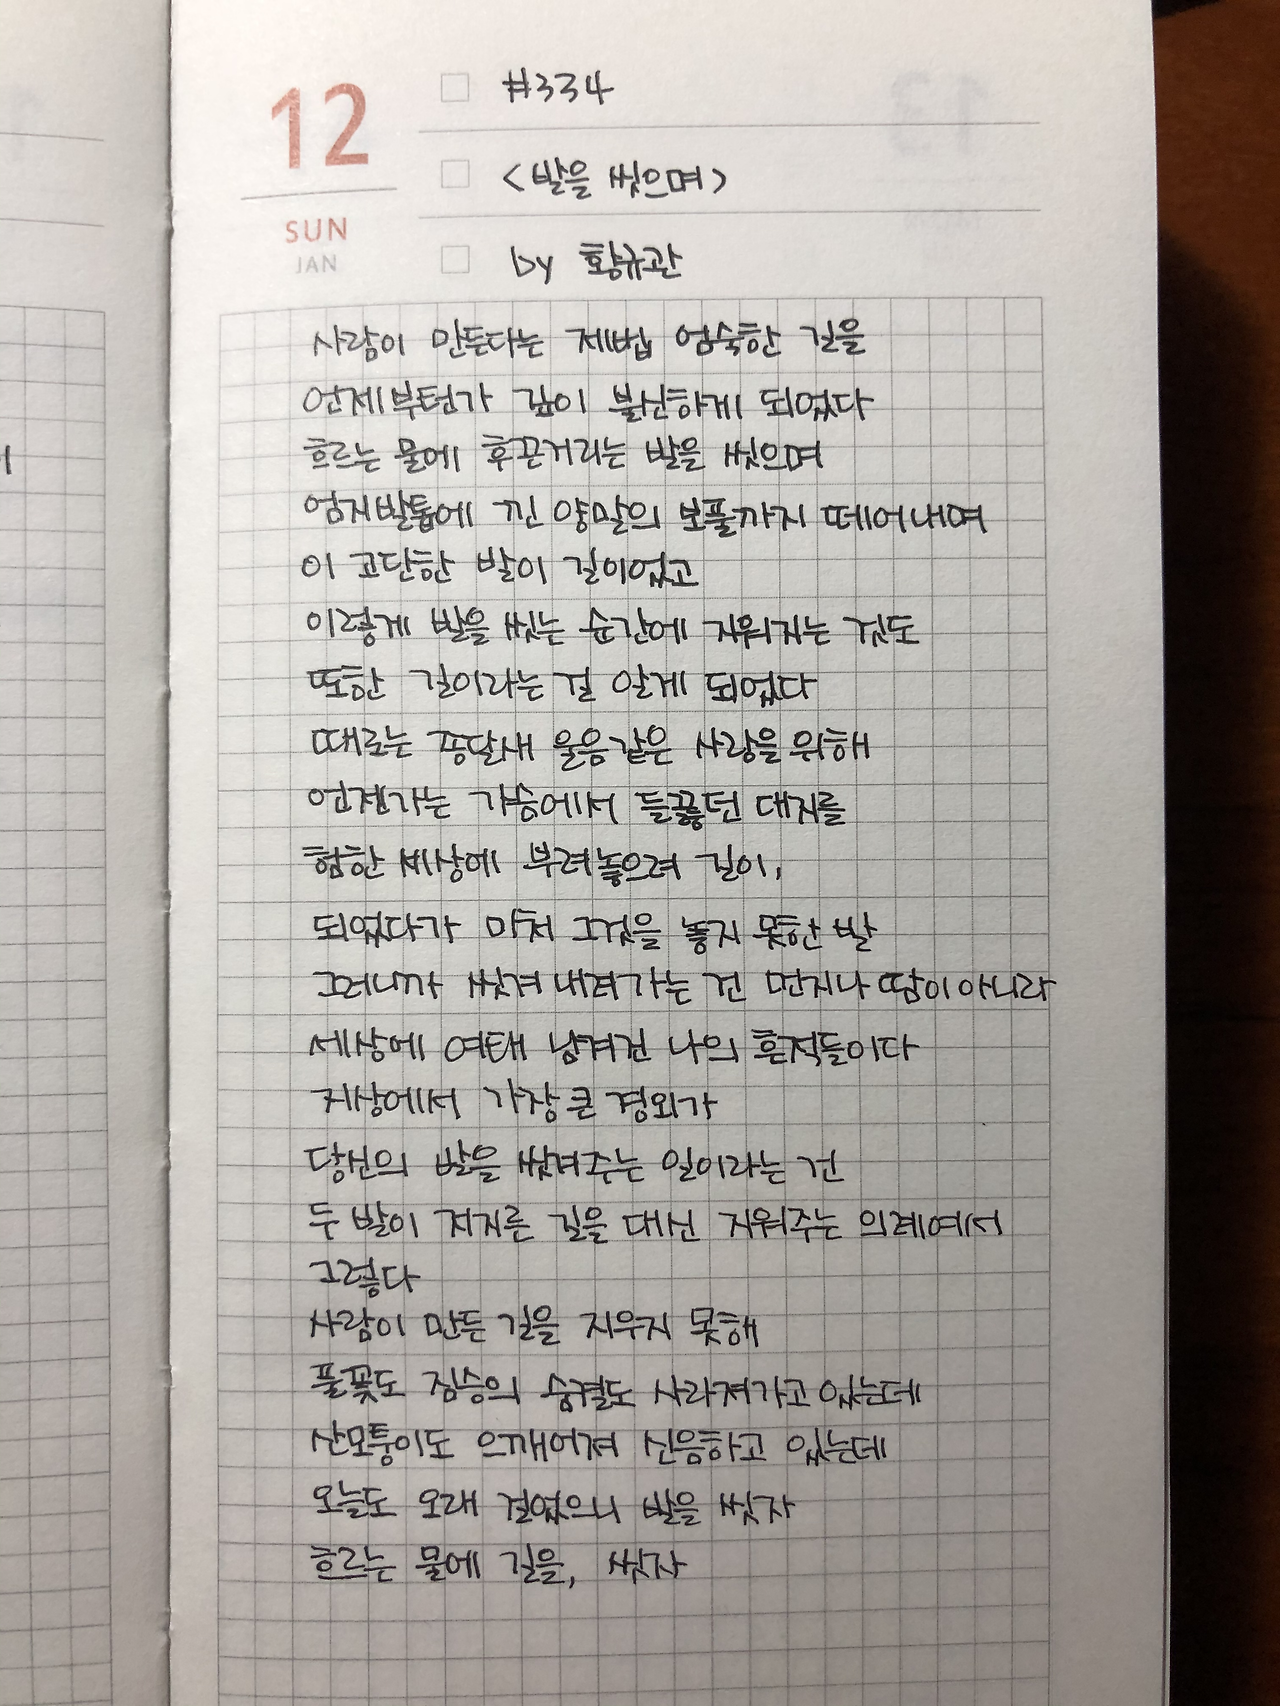 12
SUN
JAN
#334
<발을 씻으며>
by 황규관
사람이 만든다는 제법 엄숙한 길을
언제부턴가 깊이 불신하게 되었다
흐르는 물에 후끈거리는 발을 씻으며
엄지발톱에 낀 양말의 보풀까지 떼어내며
이 고단한 발이 길이었고
이렇게 발을 씻는 순간에 지워지는 것도
또한 길이라는 걸 알게 되었다
때로는 종달새 울음같은 사랑을 위해
언젠가는 가슴에서 들끓던 대지를
험한 세상에 부려놓으려 길이,
되었다가 미처 그것을 놓지 못한 발
그러니까 씻겨 내려가는 건 먼지나 땀이 아니라
세상에 여태 남겨진 나의 흔적들이다
지상에서 가장 큰 경외가
당신의 발을 씻겨주는 일이라는 건
두 발이 저지른 길을 대신 지워주는 의례여서
그렇다
사람이 만든 길을 지우지 못해
풀꽃도 짐승의 숨결도 사라져가고 있는데
산모퉁이도 으깨어져 신음하고 있는데
오늘도 오래 걸었으니 발을 씻자
흐르는 물에 길을, 씻자